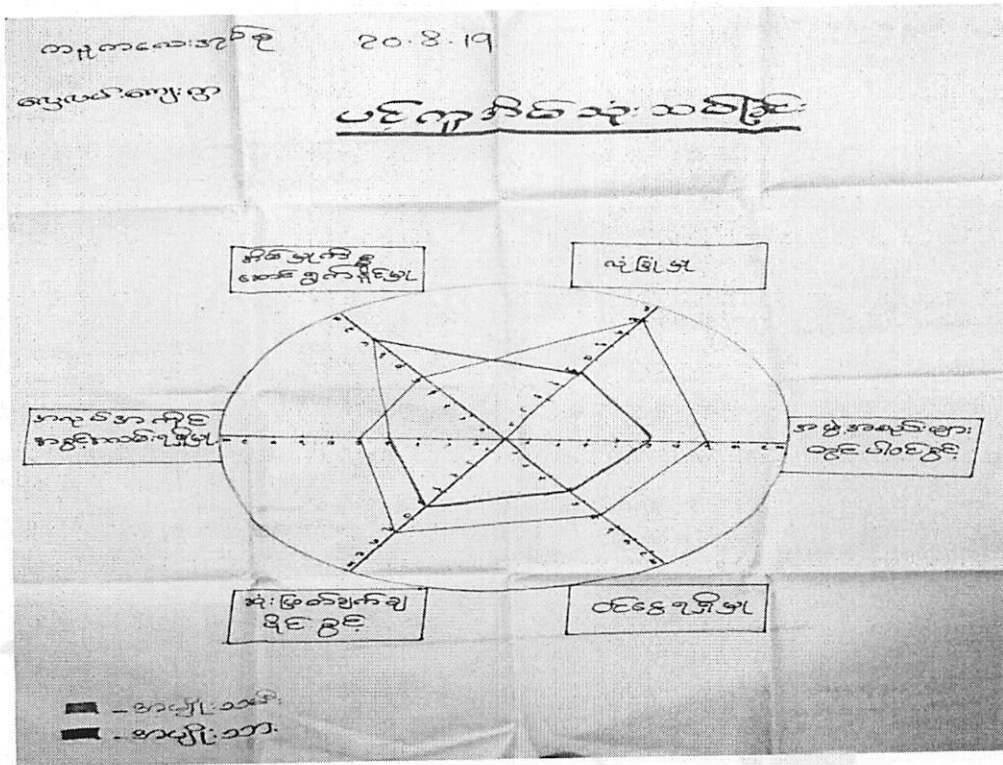 ကမူကလေးအုပ်စု 20.8.19
ပင့်ကူအိမ်သုံးသပ်ခြင်း
အိမ်မှုကိစ္စ
ဆောင်ရွက်နိုင်မှု
လုံခြုံမှု
အလုပ်အကိုင်
အခွင့်အလမ်းရရှိမှု
အဖွဲ့အစည်းများ
တွင် ပါဝင်ခွင့်
ဆုံးဖြတ်ချက်ချ
နိုင်ခွင့်
ဝင်ငွေရရှိမှု
- အမျိုးသမီး
- အမျိုးသား